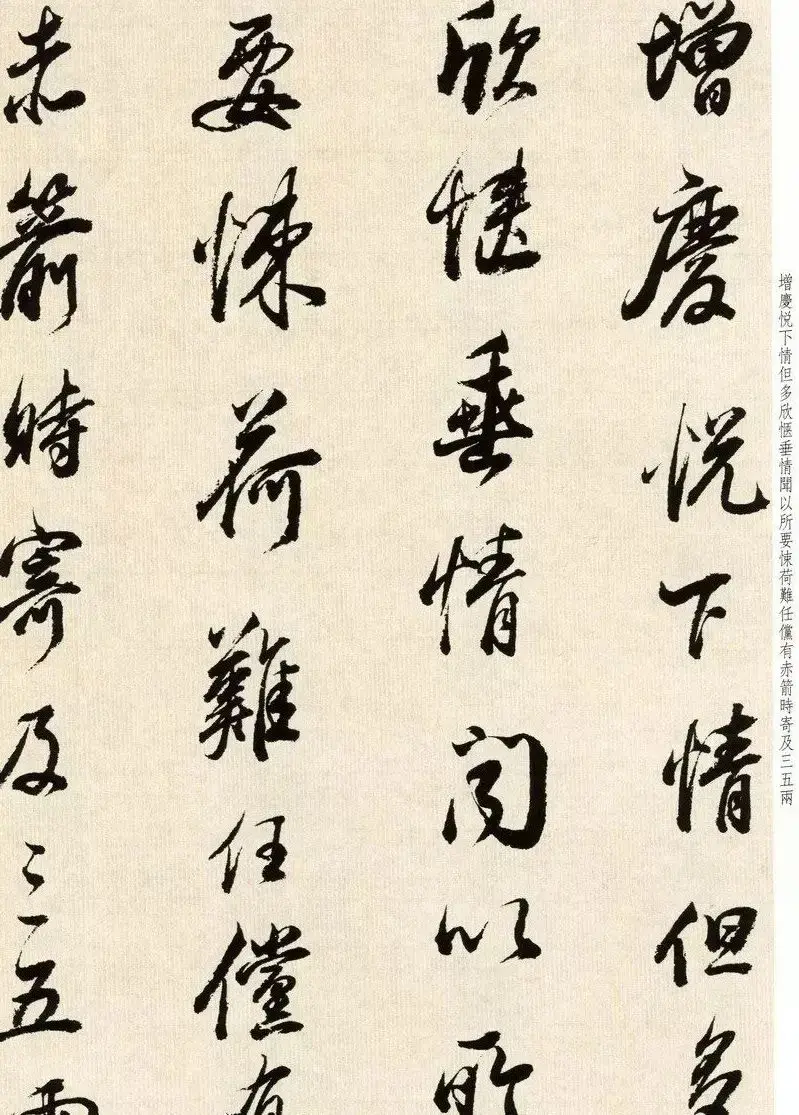 增慶悅下情但多
欣愜垂情聞以所
要悚荷難任儻有
赤箭時寄及三五兩
增慶悅下情但多欣愜垂情聞以所要悚荷難任儻有赤箭時寄及三五兩